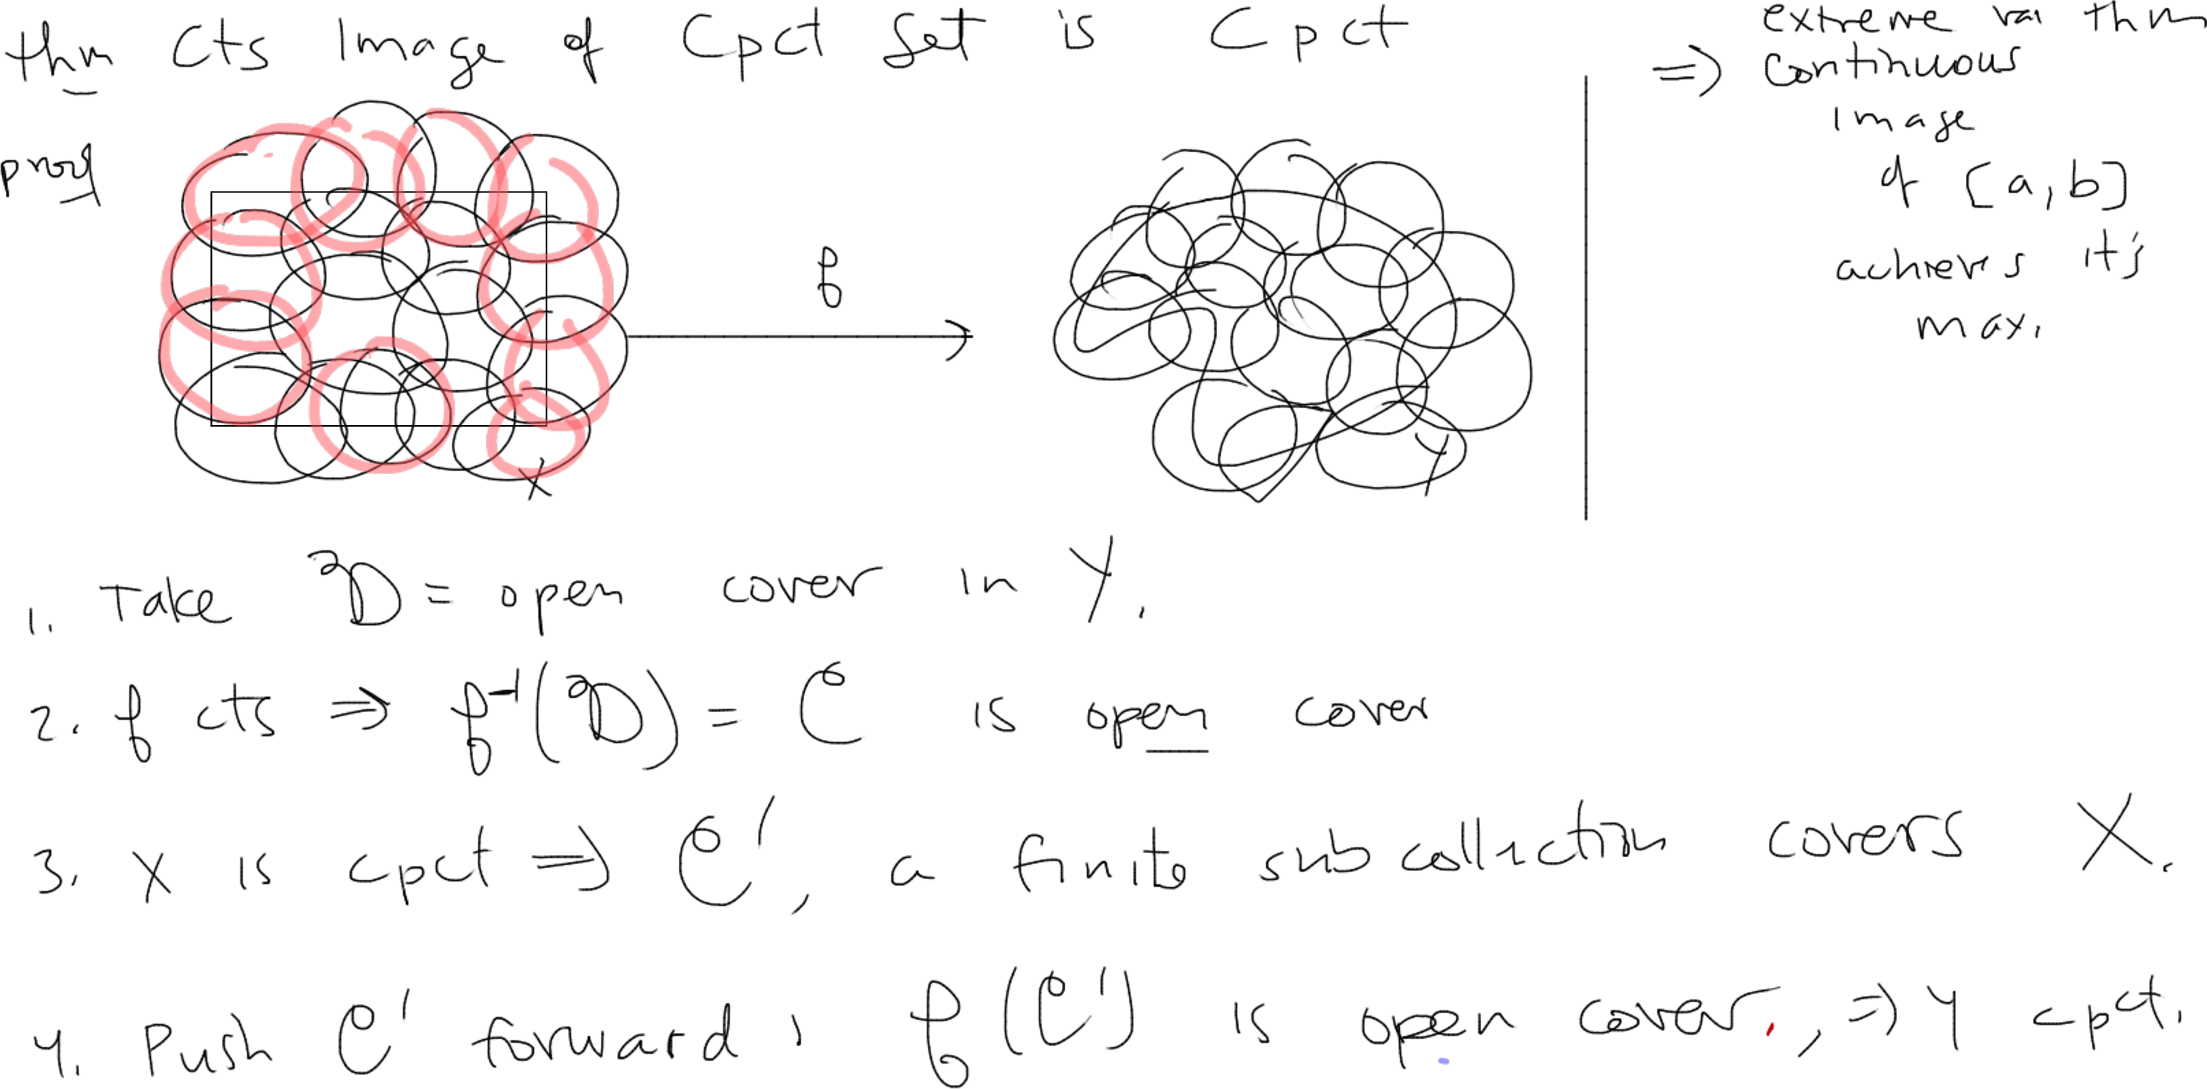 thm Cts Image of Cpct Set is Cpct
proof
f
X
Y
extreme val thm
=> continuous
Image
of [a,b]
achieves it's
max.
1. Take 𝒟 = open cover in Y.
2. f cts => f⁻¹(𝒟) = 𝒞 is open cover
3. X is cpct => 𝒞', a finite subcollection covers X.
4. Push 𝒞' forward, f(𝒞') is open cover., => Y cpct.